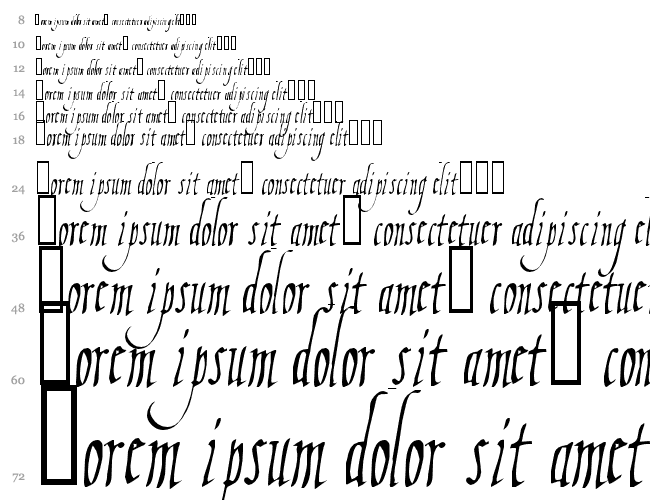 8 □orem ipsum dolor sit amet□ consectetuer adipiscing elit□□□
10 □orem ipsum dolor sit amet□ consectetuer adipiscing elit□□□
12 □orem ipsum dolor sit amet□ consectetuer adipiscing elit□□□
14 □orem ipsum dolor sit amet□ consectetuer adipiscing elit□□□
16 □orem ipsum dolor sit amet□ consectetuer adipiscing elit□□□
18 □orem ipsum dolor sit amet□ consectetuer adipiscing elit□□□
24 □orem ipsum dolor sit amet□ consectetuer adipiscing elit□□□
36 □orem ipsum dolor sit amet□ consectetuer adipiscing el
48 □orem ipsum dolor sit amet□ consectetue
60 □orem ipsum dolor sit amet□ con
72 □orem ipsum dolor sit amet